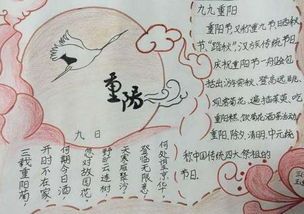 重陽
九九重阳
重阳节,又称重九节、晒秋
节、"踏秋",汉族传统节日。
庆祝重阳节一般会包
括出游赏秋、登高远眺、
观赏菊花、遍插茱萸、吃
重阳糕、饮菊花酒等活动。
重阳、除夕、清明、中元统
称中国传统四大祭祖的
节日。
九日
三载重阳菊
开时不在家
何期今日酒
忽对故园花
野旷云连树
天寒雁聚沙
登临无限意
何处望京华